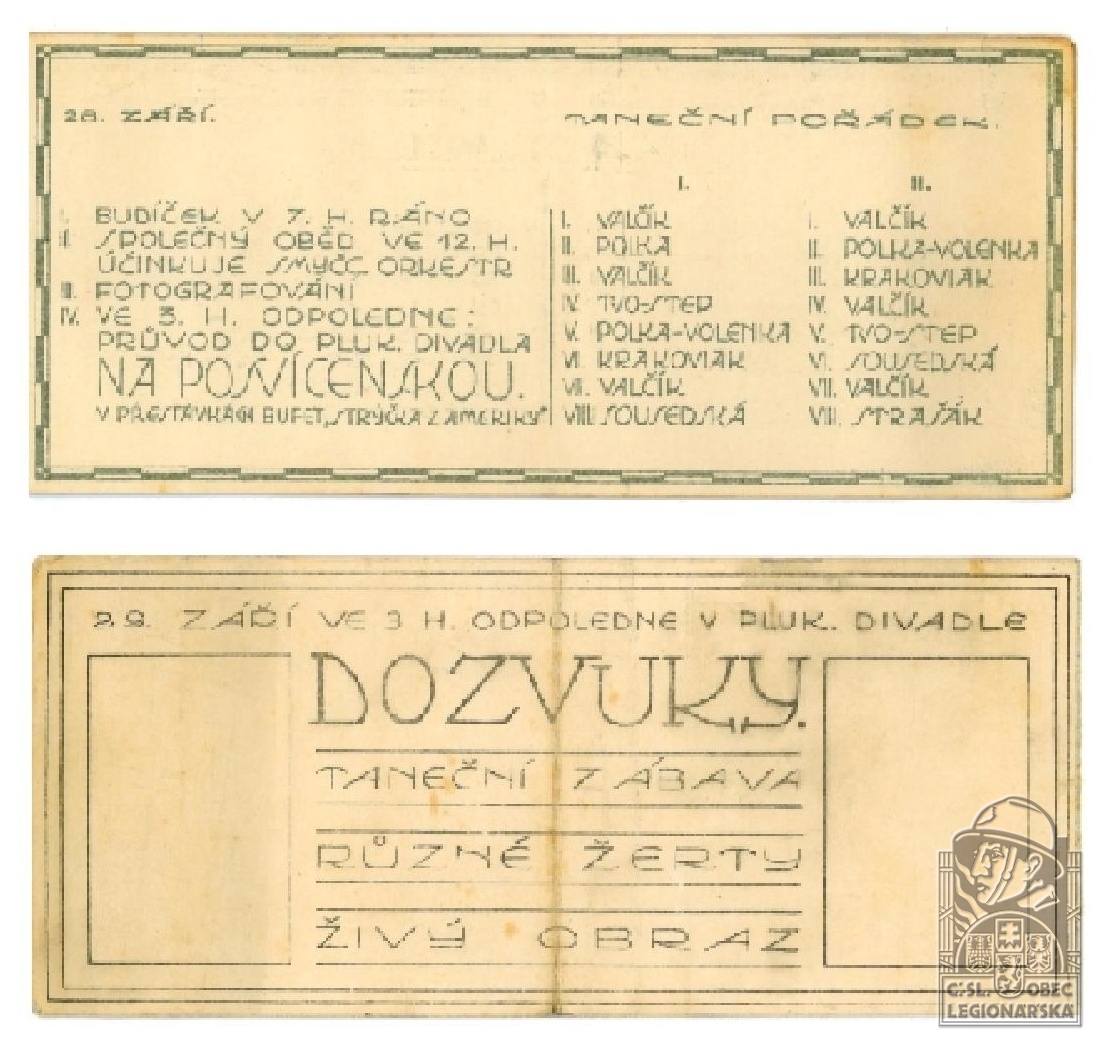 28. ZÁŘÍ.
I. BUDÍČEK V 7. H. RÁNO
II. SPOLEČNÝ OBĚD VE 12. H.
ÚČINKUJE SMYČC. ORKESTR
III. FOTOGRAFOVÁNÍ
IV. VE 3. H. ODPOLEDNE:
PRŮVOD DO PLUK. DIVADLA
NA POSVÍCENSKOU.
V PŘESTÁVKÁCH BUFET „STRÝČKA Z AMERIKY“
TANEČNÍ POŘÁDEK.
I.
I. VALČÍK
II. POLKA
III. VALČÍK
IV. TVO-STEP
V. POLKA-VOLENKA
VI. KRAKOVIAK
VII. VALČÍK
VIII. SOUSEDSKÁ
II.
I. VALČÍK
II. POLKA-VOLENKA
III. KRAKOVIAK
IV. VALČÍK
V. TVO-STEP
VI. SOUSEDSKÁ
VII. VALČÍK
VIII. STRAŠÁK
29. ZÁŘÍ VE 3 H. ODPOLEDNE V PLUK. DIVADLE
DOZVUKY.
TANEČNÍ ZÁBAVA
RŮZNÉ ŽERTY
ŽIVÝ OBRAZ
Č.SL. OBEC
LEGIONÁŘSKÁ